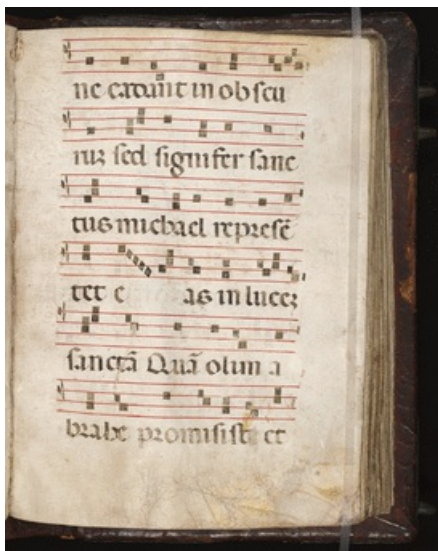 ne cadant in obscu
ruʒ sed signifer sanc
tus michael represē
tet e as in luceʒ
sanctā Quā olim a
brahe promisisti et